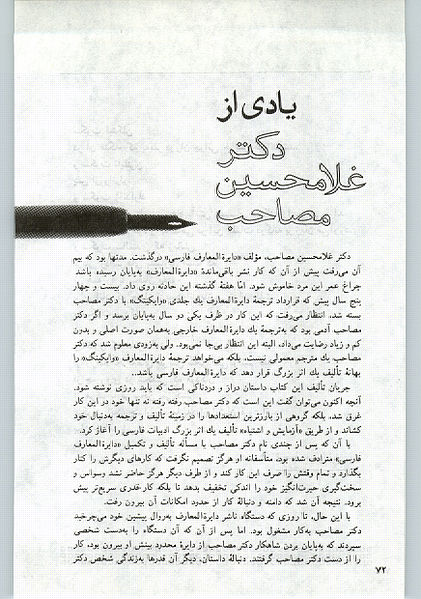 یادی از
دکتر
غلامحسین
مصاحب
دکتر غلامحسین مصاحب، مؤلف «دایرةالمعارف فارسی» درگذشت. مدتها بود که بیم
آن می‌رفت پیش از آن که کار نشر باقی‌ماندهٔ «دایرةالمعارف» به‌پایان رسیده باشد
چراغ عمر این مرد خاموش شود. امّا هفتهٔ گذشته این حادثه روی داد. بیست و چهار
پنج سال پیش که قرارداد ترجمهٔ دایرةالمعارف یك جلدی «وایکینگ» با دکتر مصاحب
بسته شد، انتظار می‌رفت که این کار در ظرف یکی دو سال به‌پایان برسد و اگر دکتر
مصاحب آدمی بود که به‌ترجمهٔ یك دایرةالمعارف خارجی به‌همان صورت اصلی و بدون
کم و زیاد رضایت می‌داد، البته این انتظار بی‌جا نمی‌بود. ولی به‌زودی معلوم شد که دکتر
مصاحب یك مترجم معمولی نیست، بلکه می‌خواهد ترجمهٔ دایرةالمعارف «وایکینگ» را
مبنای تألیف یك اثر بزرگ قرار دهد که دایرةالمعارف فارسی باشد..
جریان تألیف این کتاب داستان دراز و دردناکی است که باید روزی نوشته شود.
آنچه اکنون می‌توان گفت این است که دکتر مصاحب رفته رفته نه تنها خود در این کار
غرق شد، بلکه گروهی از بارزترین استعدادها را در زمینهٔ تألیف و ترجمه به‌دنبال خود
کشاند و از طریق «آزمایش و اشتباه» تألیف یك اثر بزرگ ادبیات فارسی را آغاز کرد.
با آن که پس از چندی نام دکتر مصاحب با مسأله تألیف و تکمیل «دایرةالمعارف
فارسی» مترادف شده بود، متأسفانه او هرگز تصمیم نگرفت که کارهای دیگرش را کنار
بگذارد و تمام وقتش را صرف این کار کند و از طرف دیگر هرگز حاضر نشد وسواس و
سخت‌گیری حیرت‌انگیز خود را اندکی تخفیف بدهد تا بلکه کار قدری سریع‌تر پیش
برود. نتیجه آن شد که دامنه و دنبالهٔ کار از حدود امکانات آن بیرون رفت.
با این حال، تا روزی که دستگاه ناشر دایرةالمعارف به‌روال پیشین خود می‌چرخید
دکتر مصاحب به‌کار مشغول بود. اما پس از آن که آن دستگاه را به‌دست شخصی
سپردند که به‌پایان بردن شاهکار دکتر مصاحب از دایرهٔ محدود بینش او بیرون بود، کار
را از دست دکتر مصاحب گرفتند. دنبالهٔ داستان، دیگر آن قدرها به‌زندگی شخص دکتر
۷۲